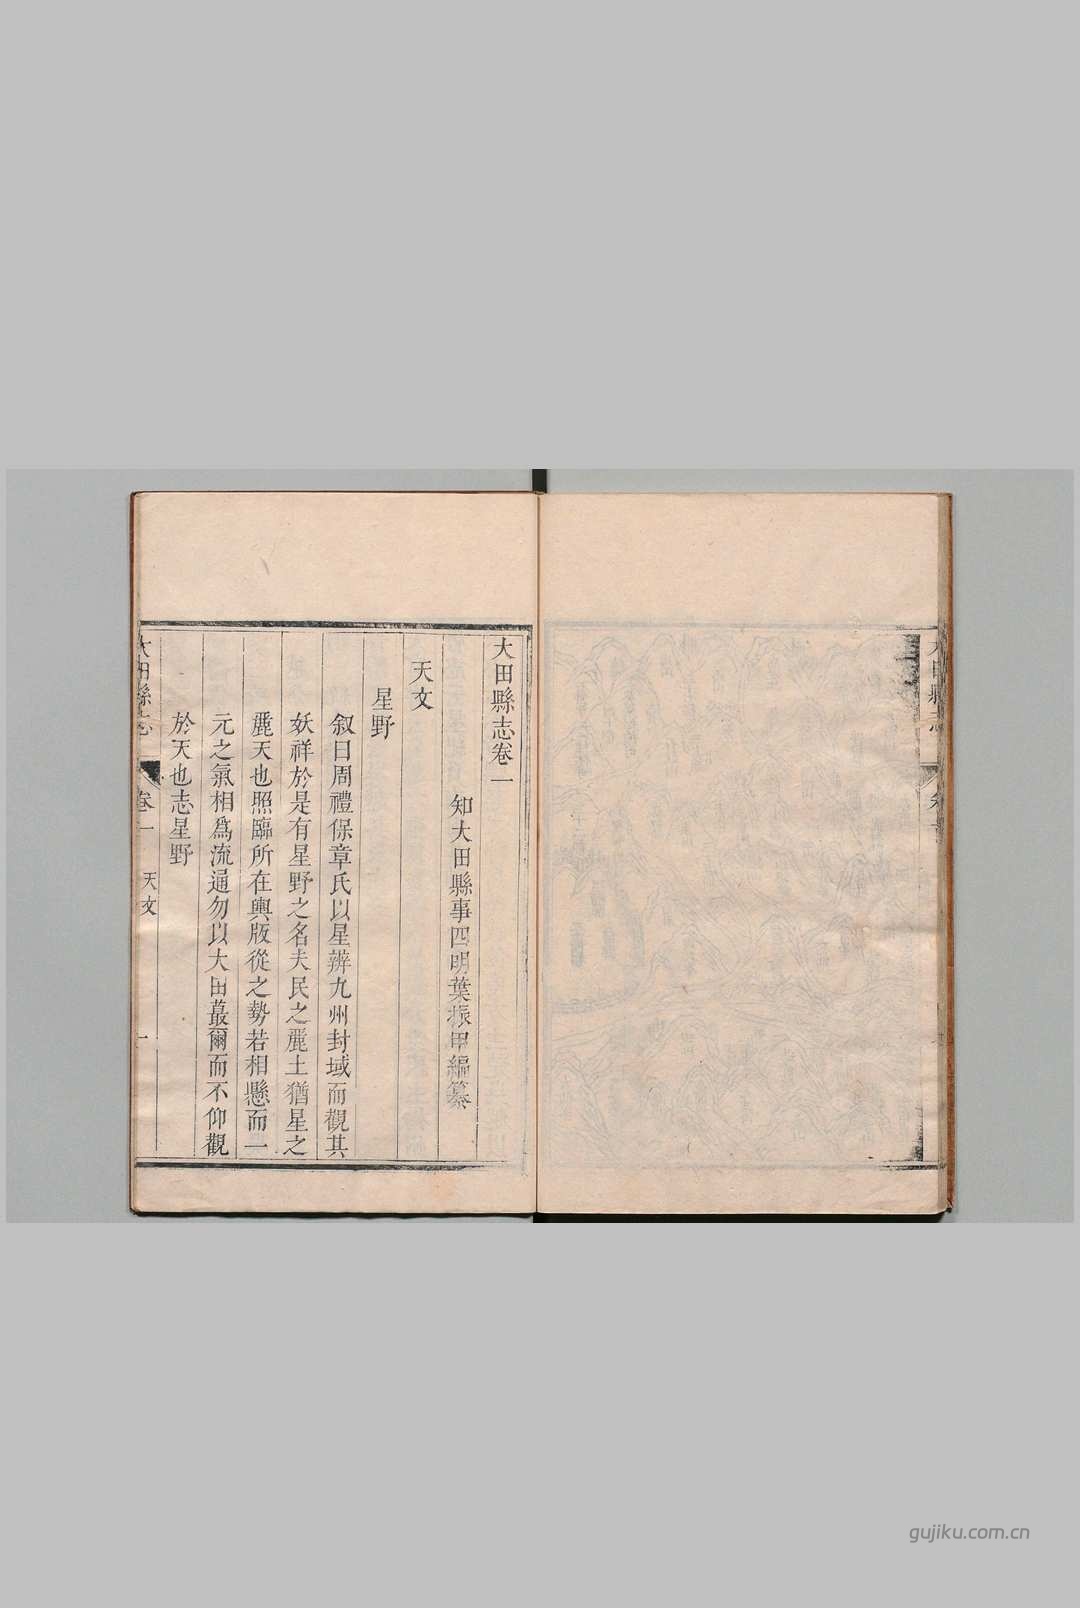 大田縣志卷一
知大田縣事四明葉振甲編纂
天文
星野
叙曰周禮保章氏以星辨九州封域而觀其
妖祥於是有星野之名夫民之麗土猶星之
麗天也照臨所在輿版從之勢若相懸而一
元之氣相爲流通勿以大田蕞爾而不仰觀
於天也志星野
大田縣志 卷一 天文 一
gujiku.com.cn